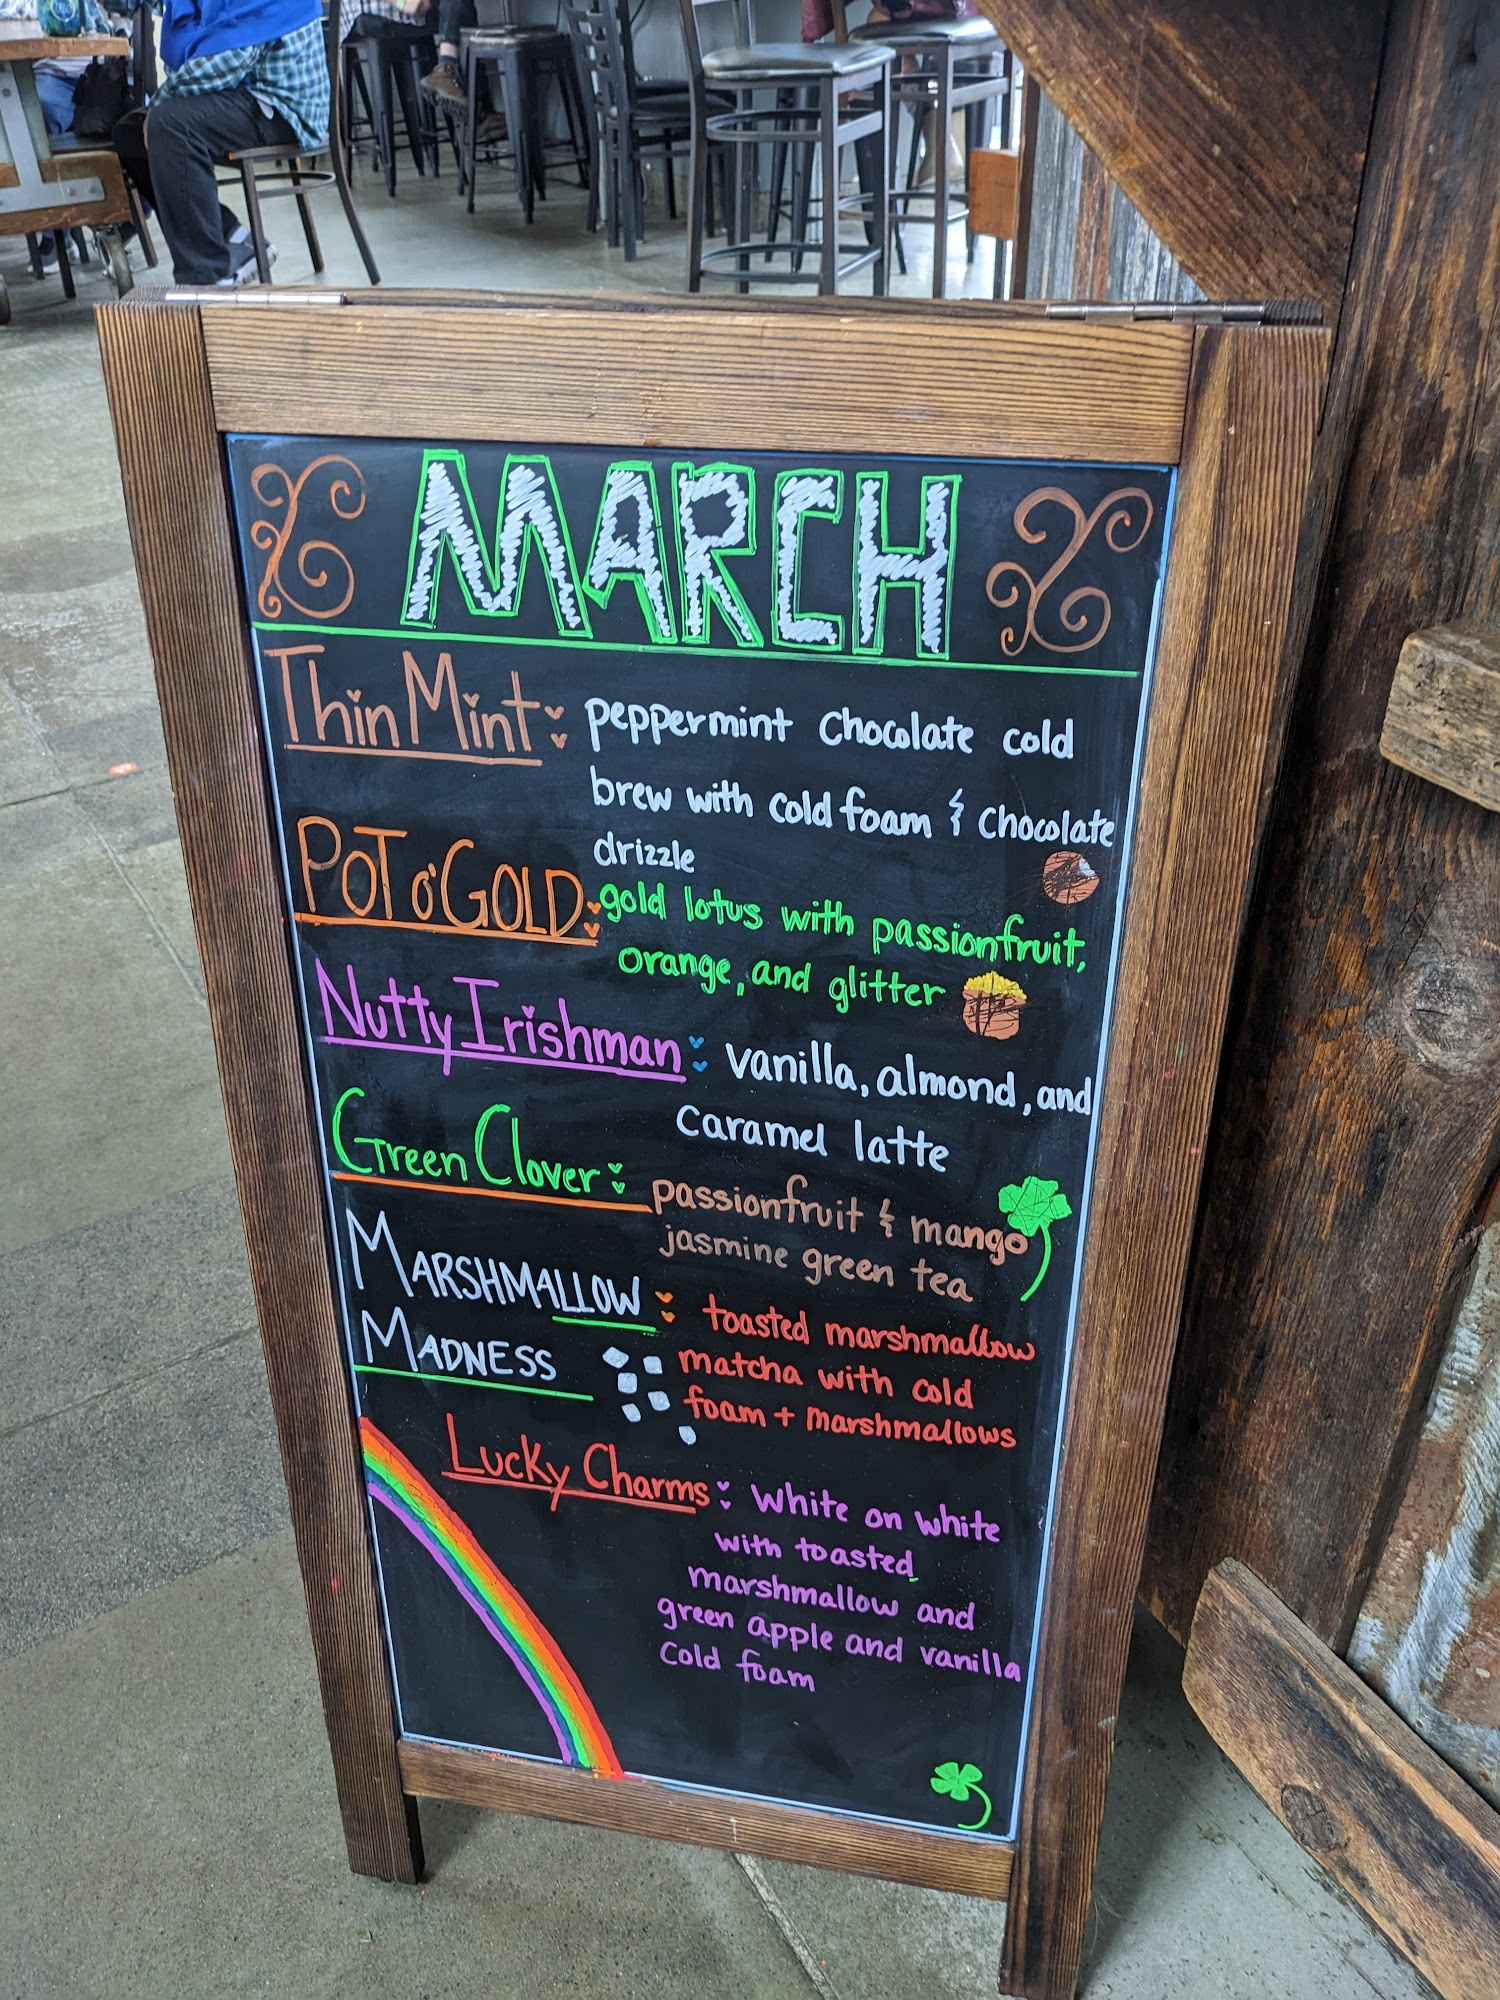 MARCH
Thin Mint: peppermint Chocolate cold
brew with cold foam & Chocolate
drizzle
POT O' GOLD: gold lotus with passionfruit,
orange, and glitter
Nutty Irishman: vanilla, almond, and
caramel latte
Green Clover: passionfruit & mango
jasmine green tea
MARSHMALLOW: toasted marshmallow
MADNESS matcha with cold
foam + marshmallows
Lucky Charms: White on white
with toasted
marshmallow and
green apple and vanilla
cold foam